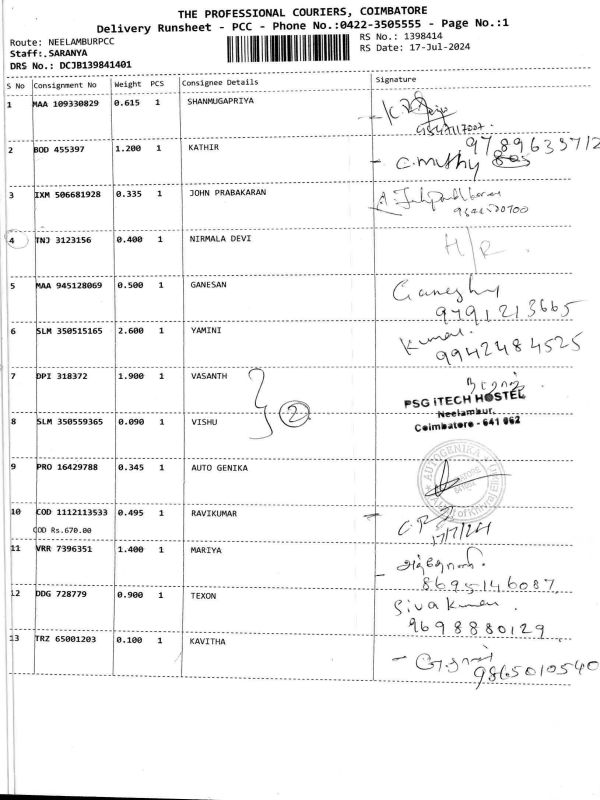 THE PROFESSIONAL COURIERS, COIMBATORE
Delivery Runsheet - PCC - Phone No.:0422-3505555 - Page No.:1
Route: NEELAMBURPCC
RS No.: 1398414
Staff:.SARANYA
RS Date: 17-Jul-2024
DRS No.: DCJB139841401
S No Consignment No Weight PCS Consignee Details Signature
1 MAA 109330829 0.615 1 SHANMUGAPRIYA
2 BOD 455397 1.200 1 KATHIR
C. Muthy
3 IXM 506681928 0.335 1 JOHN PRABAKARAN
4 TNJ 3123156 0.400 1 NIRMALA DEVI H/R
5 MAA 945128069 0.500 1 GANESAN
9791213665
6 SLM 350515165 2.600 1 YAMINI Kumar.
9942484525
7 DPI 318372 1.900 1 VASANTH
PSG iTECH HOSTEL
Neelambur,
Coimbatore - 641 062
2
8 SLM 350559365 0.090 1 VISHU
9 PRO 16429788 0.345 1 AUTO GENIKA
AUTOGENIKA
10 COD 1112113533 0.495 1 RAVIKUMAR
COD Rs.670.00
17/7/24
11 VRR 7396351 1.400 1 MARIYA
8695146087
12 DDG 728779 0.900 1 TEXON Siva kumar.
9698880129
13 TRZ 65001203 0.100 1 KAVITHA
9865010540